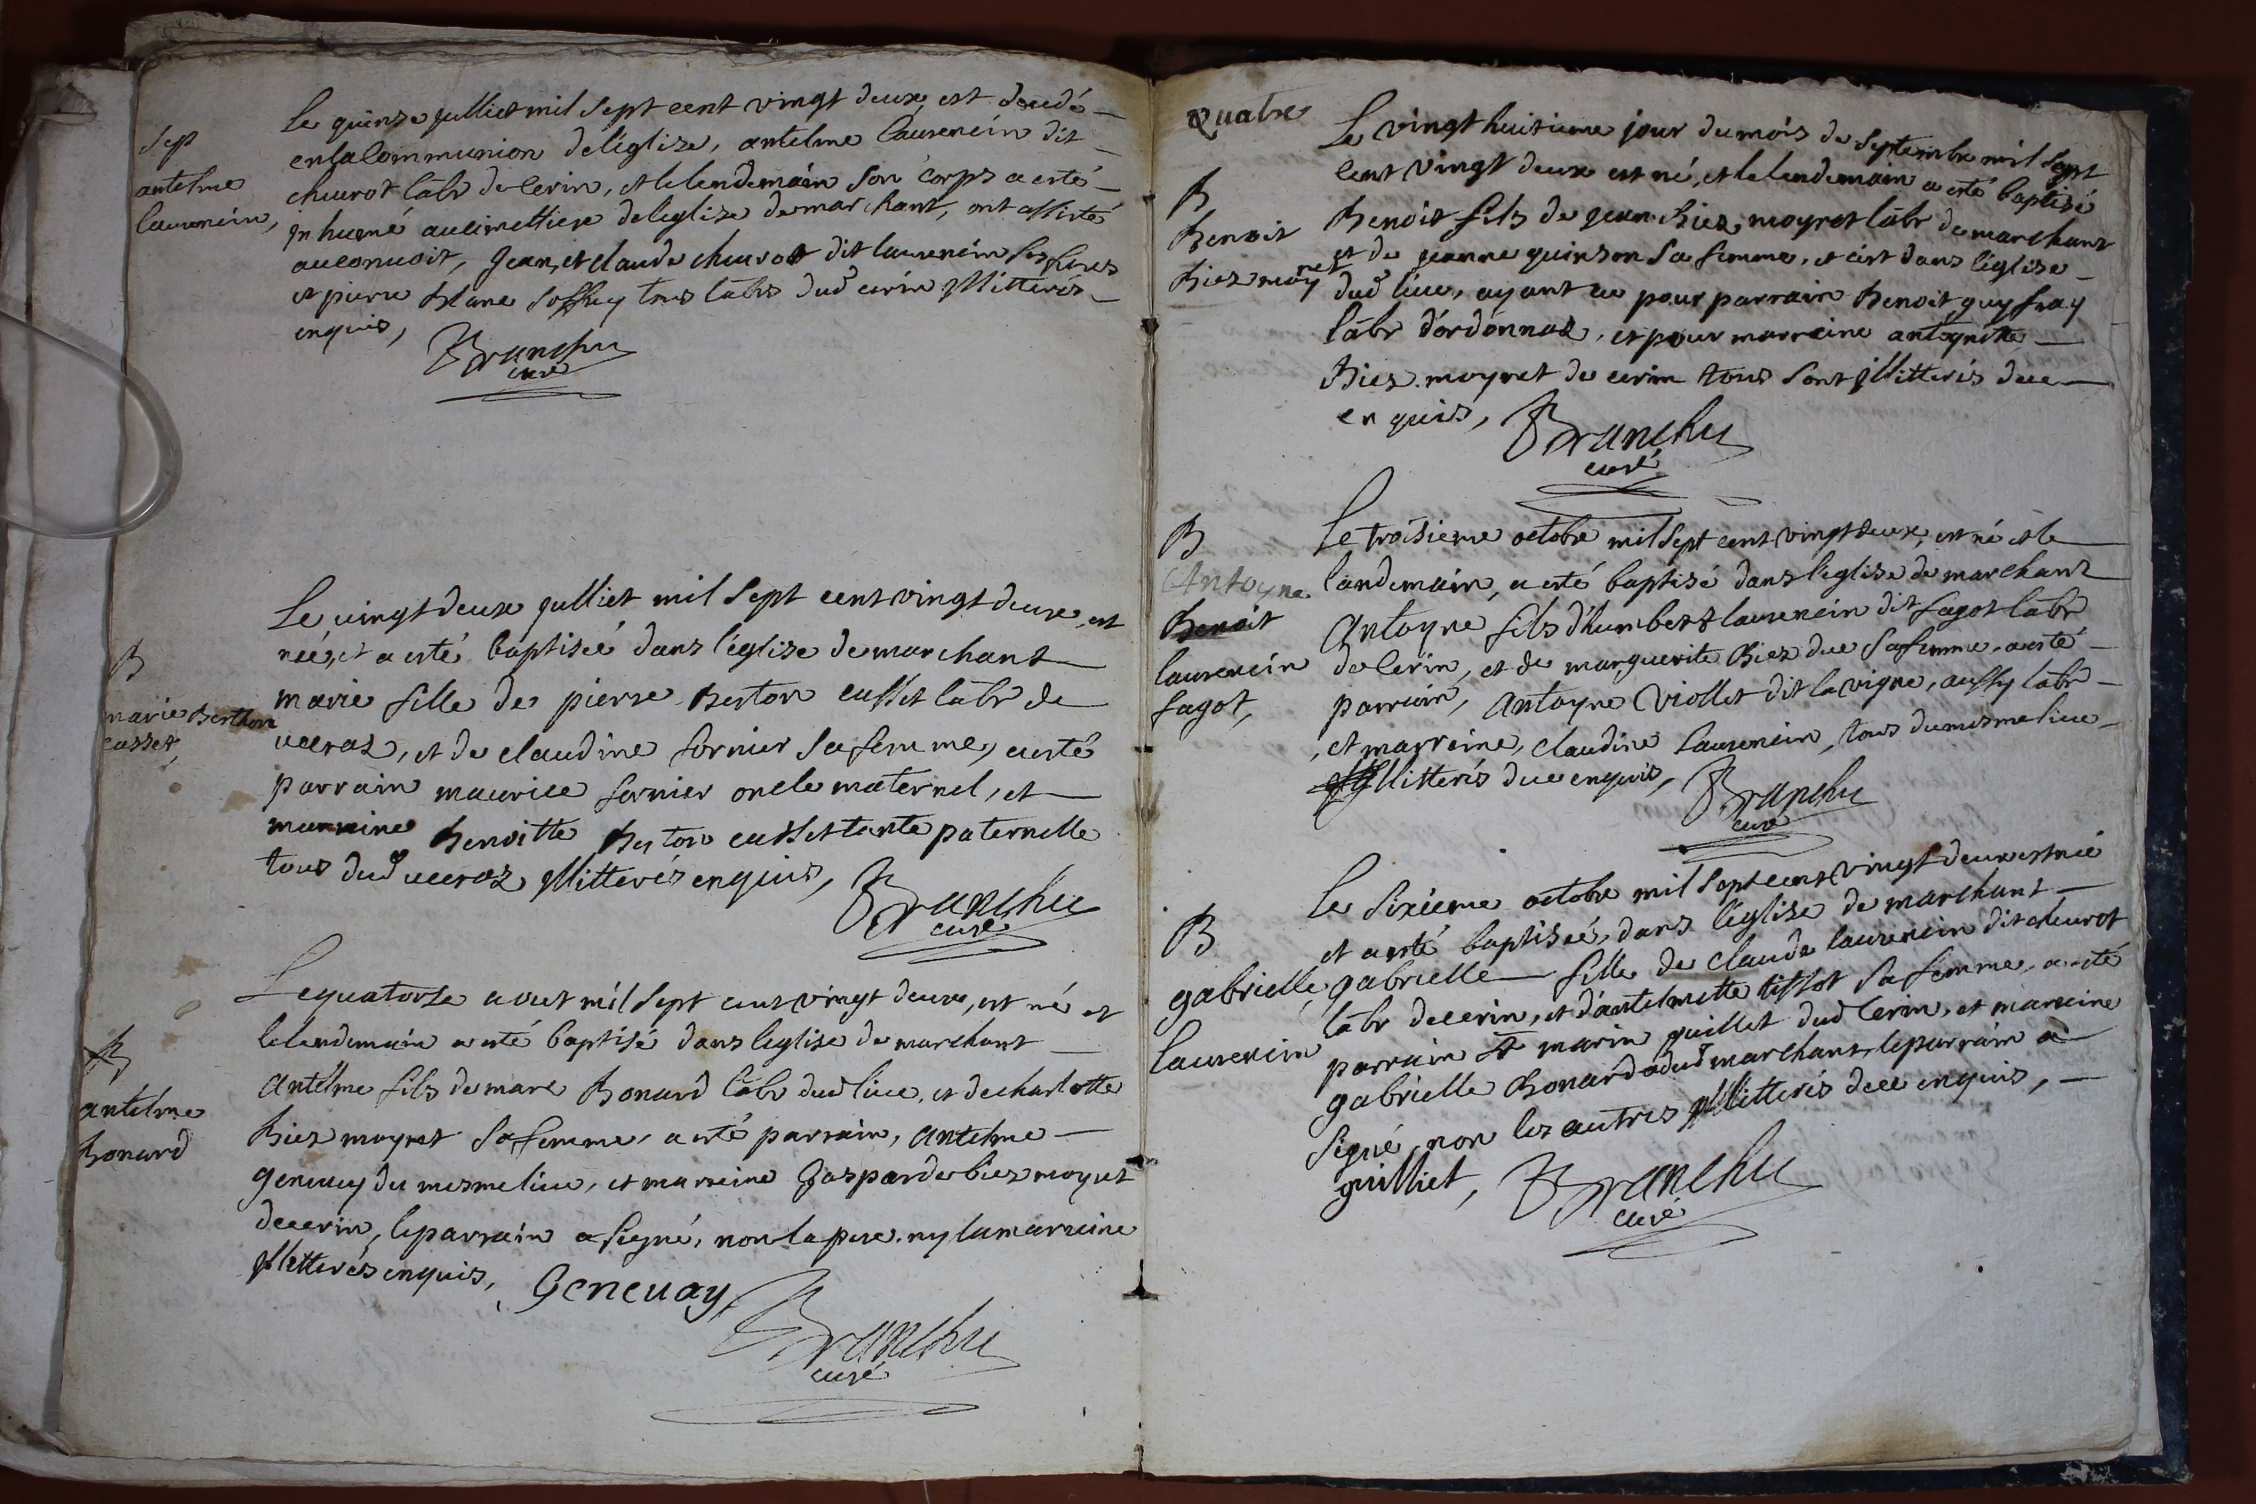 Sep
antelme
laurencin,
Le quinze julliet mil sept cent vingt deux, est decedé
en la Communion de l'eglise, antelme laurencin dit
cheurot labr de Cerin, et le lendemain son corps a esté
inhumé au cimettiere de l'eglise de marchant, ont assisté
au convoit, jean, et claude cheurot dit laurencin ses freres
et pierre blanc soffrey tous labrs dud cerin illitterés
enquis,
Branchu
curé
B
marie Berthon
cusset,
Le vingt deux julliet mil sept cent vingt deux, est
neé, et a esté baptiseé dans l'église de marchant
marie fille de pierre Berton cusset labr de
ueeroz, et de claudine fornier sa femme, a esté
parrain maurice fornier oncle maternel, et
marraine Benoitte Berton cusset tante paternelle
tous dud ueeroz illitterés enquis,
Branchu
curé
B
antelme
Bonard
Le quatorze aout mil sept cent vingt deux, est né et
le lendemain a esté baptisé dans leglise de marchant
Antelme fils de marc Bonard labr dud lieu, et de charlotte
Biez moyret sa femme, a esté parrain, Antelme
genevey du mesme lieu, et marreine gasparde biez moyret
de cerin, le parrain a signé, non le pere, ny la marreine
illitterés enquis,
Genevay
Branchu
curé
Quatre
B
Benoit
Biez moyret
Le vingt huitieme jour du mois de septembre mil sept
cent vingt deux est né, et le lendemain a esté baptisé
Benoit fils de jean Biez moyret labr de marchant
et de jeanne quinson sa femme, et c'est dans l'église
dud lieu, ayant eu pour parrain Benoit guyfray
labr d'ordonnaz, et pour marreine antoynette
Biez moyret de cerin tous sont illitterés de ce
enquis,
Branchu
curé
B
Antoyne
Benoit
laurencin
fagot,
Le troisieme octobre mil sept cent vingt deux, est né et le
landemain, a esté baptisé dans l'eglise de marchant
Antoyne fils d'humbert laurencin dit fagot labr
de Cerin, et de marguerite Biez due sa femme, a esté
parrain, Antoyne Viollet dit la vigne, aussy labr
et marreine, claudine laurencin, tous du mesme lieu
illitterés de ce enquis,
Branchu
curé
B
gabrielle
laurencin
Le sixieme octobre mil sept cent vingt deux est neé
et a esté baptiseé, dans l'église de marchant
gabrielle fille de claude laurencin dit cheurot
labr de cerin, et d'antelmette tissot sa femme, a esté
parrain marin guillet dud Cerin, et marreine
gabrielle Bonard dud marchant, le parrain a
signé, non les autres illitterés de ce enquis,
guilliet,
Branchu
curé